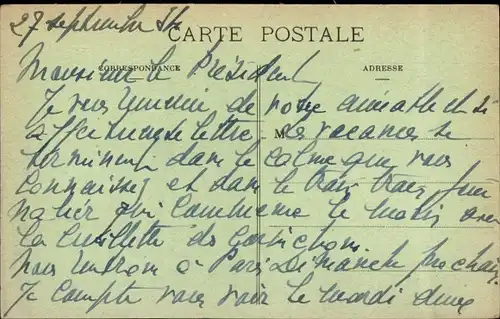 27 septembre
CARTE POSTALE
CORRESPONDANCE ADRESSE
Monsieur le Président
Je vous remercie de votre aimable et si
affectueuse lettre. M Les vacances se
terminent dans le calme que vous
connaissez et dans le train train jour
nalier qui commence le matin par
la cueillette des cornichons.
Nous rentrons à Paris Dimanche prochain.
Je compte vous voir le mardi